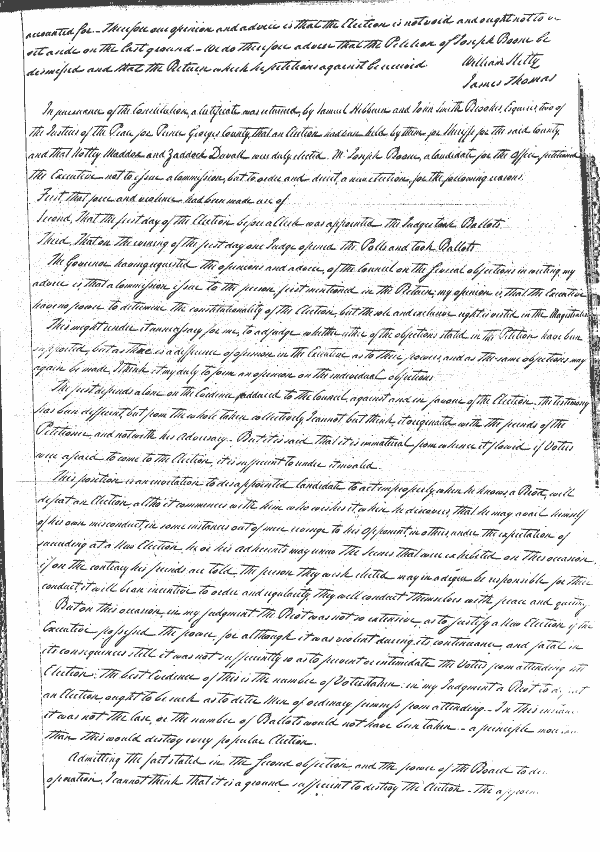 accounted for - Therefore our opinion and advice is that the Election is not void and ought not to be
set aside on the last ground - We do therefore advise that the Petition of Joseph Boone be
dismissed and that the Return which he petitions against be revived
William Kilty
James Thomas
In pursuance of the Constitution, a Certificate was returned, by Samuel Hebburn and John Smith Brookes, Esquires, two of
the Justices of the Peace for Prince Georges County, that an Election had been held by them for Sheriffs for the said County
and that Notley Maddox and Zaddock Duvall were duly elected. Mr Joseph Boone, a Candidate for the Office, petitioned
the Executive not to issue a Commission, but to order and direct a new election, for the following reasons.
First, that force and violence had been made use of
Second, That the first day of the Election before a Clerk was appointed the Judges took Ballots.
Third, That on the evening of the first day one Judge opened the Polls and took Ballots
The Governor having requested the opinions and advice, of the Council on the several objections in writing my
advice is that a Commission issue to the person first mentioned in the Return; my opinion is, that the Executive
have no power to determine the constitutionality of the Election, but the sole and exclusive right is vested in the Magistrates
This might render it unnecessary for me, to adjudge whether either of the objections stated in the Petition have been
supported, but as there is a difference of opinion in the Executive as to their power, and as the same objections may
again be made, I think it my duty to form an opinion on the individual objections
The first depends alone on the Evidence adduced to the Council, against and in favour of the Election. The testimony
has been different but from the whole taken collectively I cannot but think it originated with the friends of the
Petitioner and not with his Adversary - But it is said that it is immaterial from whence it flowed if Voters
were afraid to come to the Election, it is sufficient to render it invalid.
This position is an invitation to disappointed Candidate to act improperly, when he knows, a Riot, will
defeat an Election, altho it commences with him who wishes it, when he discovers, that he may avail himself
of his own misconduct, in some instances out of mere revenge to his opponent in others under the expectation of
succeeding at a New Election he or his adherents may renew the Scenes that were exhibited on this occasion
if on the contrary his friends are told, the person they wish elected may in a degree be responsible for their
conduct, it will be an incentive to order and regularity they will conduct themselves with peace and quiet
But on this occasion, in my judgment the Riot was not so extensive, as to justify a New Election if the
Executive possessed the power, for although it was violent during its continuance, and fatal in
its consequences still it was not sufficiently so as to prevent or intimidate the Voters from attending the
Election: The best Evidence of this is the number of Votes taken: in my Judgment a Riot to
an Election ought to be such as to deter Men of ordinary firmness from attending. - In this instance
it was not the case, or the number of Ballots would not have been taken - a principle
than this would destroy every popular Election.
Admitting the fact stated in the second objection and the power of the Board to
operation, I cannot think that it is a ground sufficient to destroy the Election - The